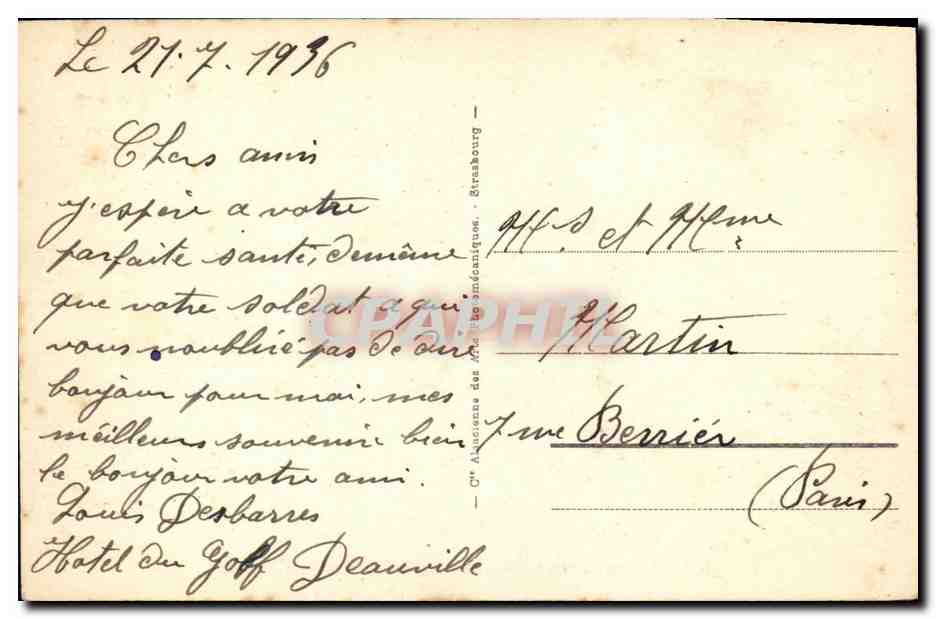 Le 21.7.1936
Chers amis
J'espère a votre
parfaite santé, demême
que votre soldat a qui
vous noublire pas de dire
bonjour pour moi, mes
meilleurs souvenir bien
le bonjour votre ami.
Louis Desbarres
Hotel du Golf Deauville
— Cie Alsacienne des Arts Photomécaniques. - Strasbourg —
Mr et Mme
Martin
7 rue Berrier
(Paris)
CPAPHIL